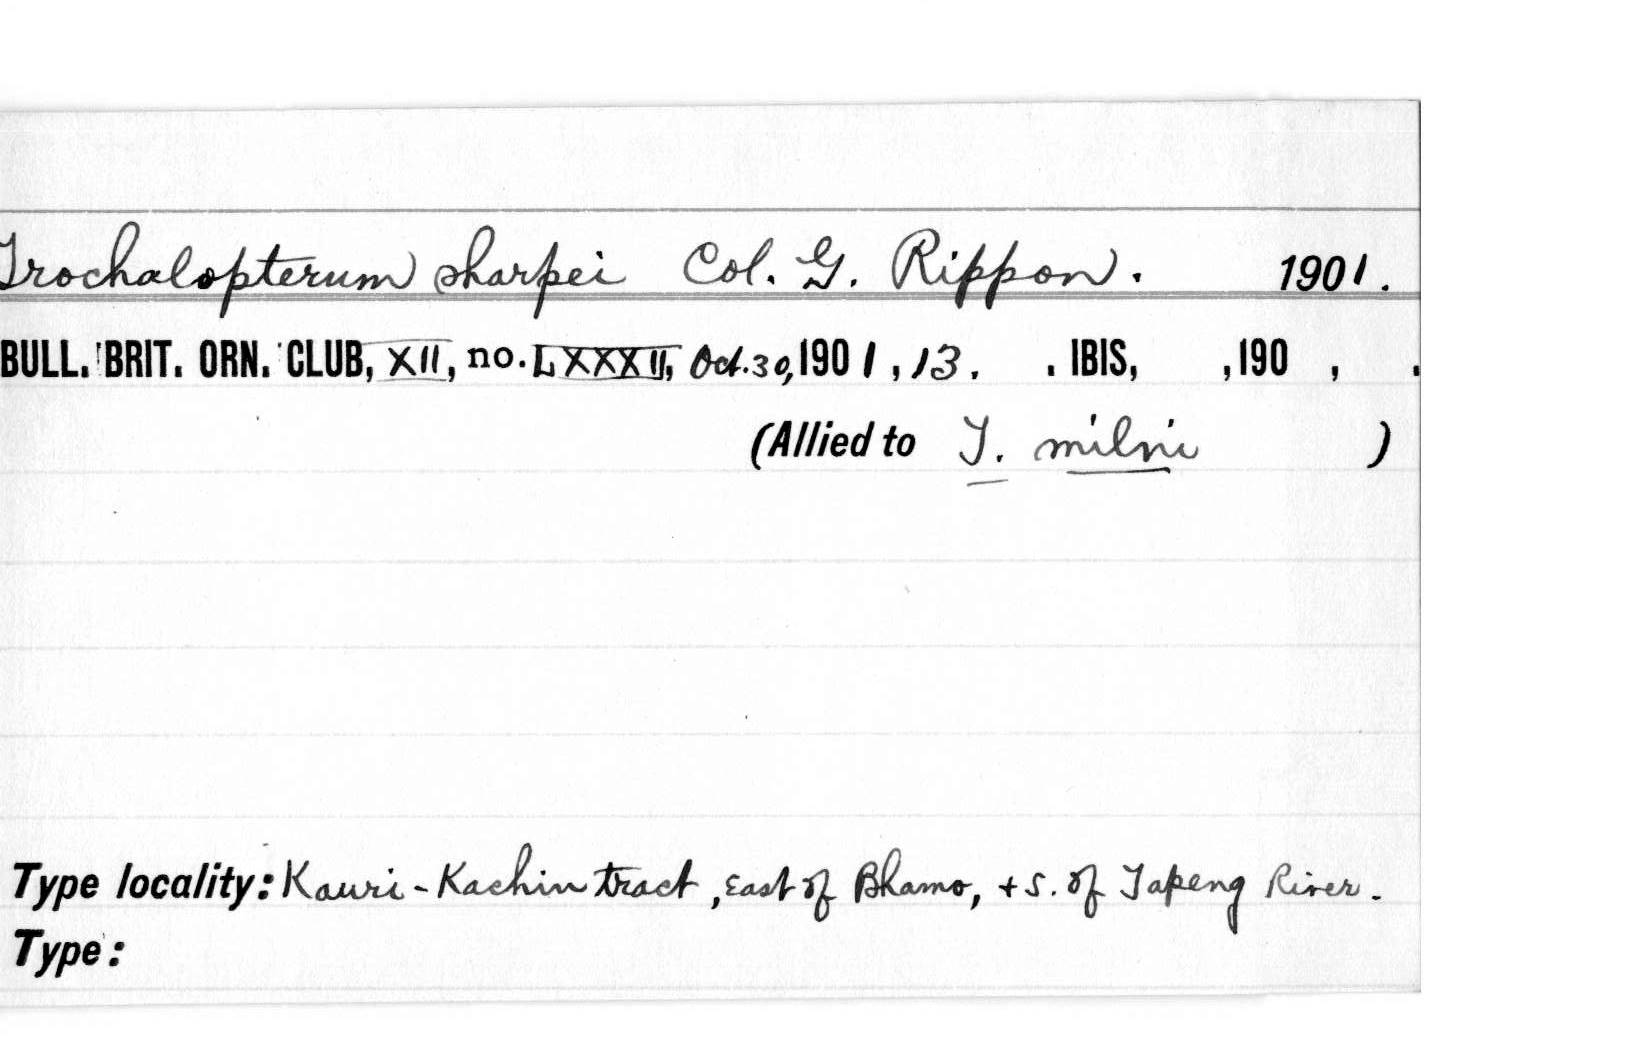 Trochalopterum sharpei Col. G. Rippon. 1901.
BULL. BRIT. ORN. CLUB, XII, no. LXXXII, Oct. 30, 1901, 13. . IBIS, , 190 , .
(Allied to T. milni )
Type locality: Kauri-Kachin tract, East of Bhamo, + S. of Tapeng River.
Type: